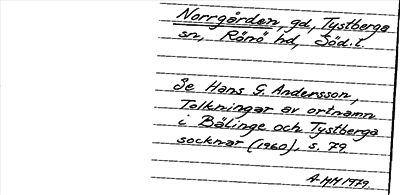 Norrgården, gd, Tystberga
sn, Rönö hd, Söd.l.
Se Hans G. Andersson,
Tolkningar av ortnamn
i Bälinge och Tystberga
socknar (1960), s. 79.
A-MM 1979